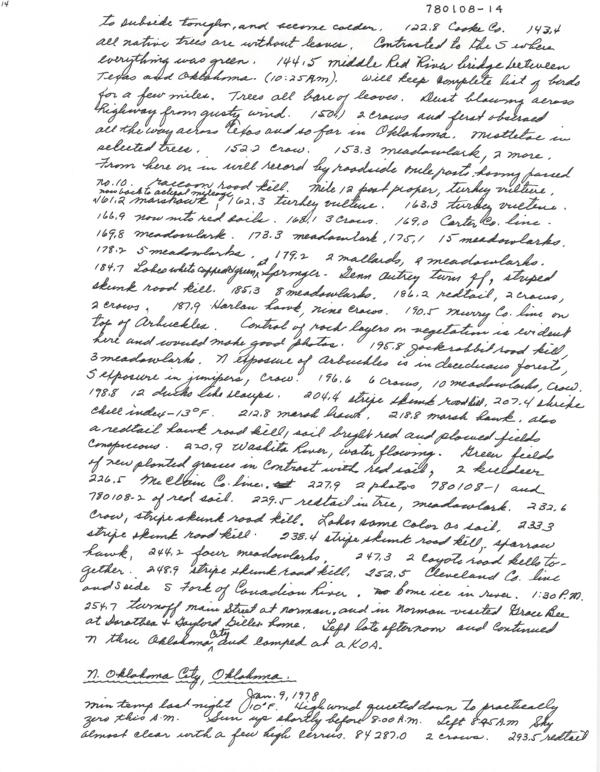 14
780108-14
to subside tonight, and become colder. 122.8 Cooke Co. 143.4
all native trees are without leaves. Contrasted to the S where
everything was green. 144.5 middle Red River bridge between
Texas and Oklahoma. (10:25 A.M.) Will keep complete list of birds
for a few miles. Trees all bare of leaves. Dust blowing across
highway from gusty wind. 150.1 2 crows and first observed
all the way across Texas and so far in Oklahoma. Mistletoe in
selected trees. 152.2 crow. 153.3 meadowlark, 2 more.
From here on in will record by roadside mile post. having passed
no. 10. raccoon road kill. Mile 12 post proper, turkey vulture.
now back to actual mileage
161.2 marsh hawk, 162.3 turkey vulture. 163.3 turkey vulture.
166.9 now into red soils. 168.1 3 crows. 169.0 Carter Co. line.
169.8 meadowlark. 173.3 meadowlark, 175.1 15 meadowlarks.
178.2 5 meadowlarks. 179.2 2 mallards, a meadowlarks.
184.7 Lakes white capped green, Springer - Gene Autrey turn off, striped
skunk road kill. 185.3 8 meadowlarks. 186.2 redtail, 2 crows,
2 crows. 187.9 Harlan hawk, nine crows. 190.5 Murry Co. line on
top of Arbuckles. Control of rock layers on vegetation is evident
here and would make good photos. 195.8 jackrabbit road kill,
3 meadowlarks. N exposure of Arbuckles is in deciduous forest,
S exposure in junipers, crow. 196.6 6 crows, 10 meadowlarks, crow.
198.8 12 ducks like scaups. 204.4 stripe skunk road kill, 207.4 shrike
chill index -13°F. 212.8 marsh hawk. 218.8 marsh hawk. also
a redtail hawk road kill; soil bright red and plowed fields
conspicuous. 220.9 Washita River, water flowing. Green fields
of new planted grasses in contrast with red soil, 2 killdeer
226.5 McClain Co. line. 227.9 2 photos 780108-1 and
780108-2 of red soil. 229.5 redtail in tree, meadowlark. 232.6
crow, stripe skunk road kill. Lakes same color as soil. 233.3
stripe skunk road kill. 238.4 stripe skunk road kill, sparrow
hawk, 244.2 four meadowlarks. 247.3 2 coyote road kills to-
gether. 248.9 stripe skunk road kill, 252.5 Cleveland Co. line
and S side S Fork of Canadian River. some ice in river. 1:30 P.M.
254.7 turnoff main Street at Norman, and in Norman visited Grace Bee
at Dorothea & Gaylord home. Left late afternoon and continued
N thru Oklahoma City and camped at a KOA.
N. Oklahoma City, Oklahoma.
Jan. 9, 1978
min temp last night 10°F. High wind quieted down to practically
zero this A.M. Sun up shortly before 8:00 A.M. Left 8:45 A.M. Sky
almost clear with a few high cirrus. 84287.0 2 crows. 293.5 redtail